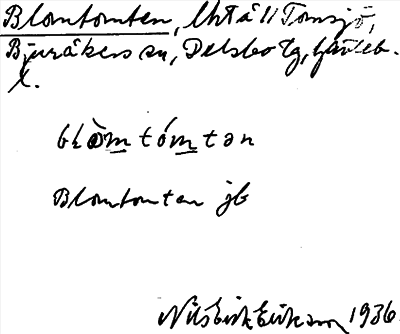 Blomtomten, Ektå i Tomsjö,
Bjuråkers sn, Delsbo tg, Gävleb.
l.
blòmtómtən
Blomtomten jb
Nils Erik Eriksson 1936